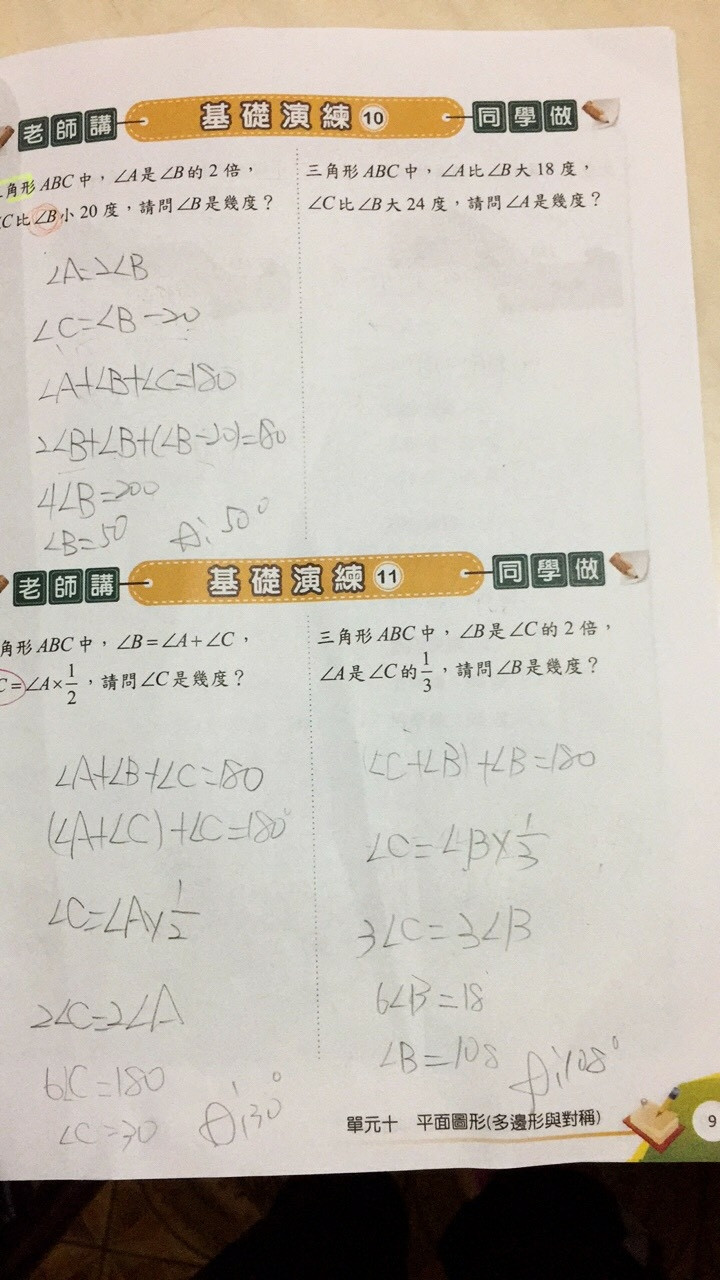 老師講 基礎演練 10 同學做
角形ABC中，∠A是∠B的2倍，
∠C比∠B小20度，請問∠B是幾度？
∠A=2∠B
∠C=∠B-20
∠A+∠B+∠C=180
2∠B+∠B+(∠B-20)=180
4∠B=200
∠B=50
A: 50°
三角形ABC中，∠A比∠B大18度，
∠C比∠B大24度，請問∠A是幾度？
老師講 基礎演練 11 同學做
角形ABC中，∠B=∠A+∠C，
C=∠A×1/2，請問∠C是幾度？
∠A+∠B+∠C=180
(∠A+∠C)+∠C=180°
∠C=∠A×1/2
2∠C=2∠A
6∠C=180
∠C=30
A: 30°
三角形ABC中，∠B是∠C的2倍，
∠A是∠C的1/3，請問∠B是幾度？
(∠C+∠B)+∠B=180
∠C=∠B×1/3
3∠C=3∠B
6∠B=18
∠B=108
A: 108°
單元十 平面圖形(多邊形與對稱)
9